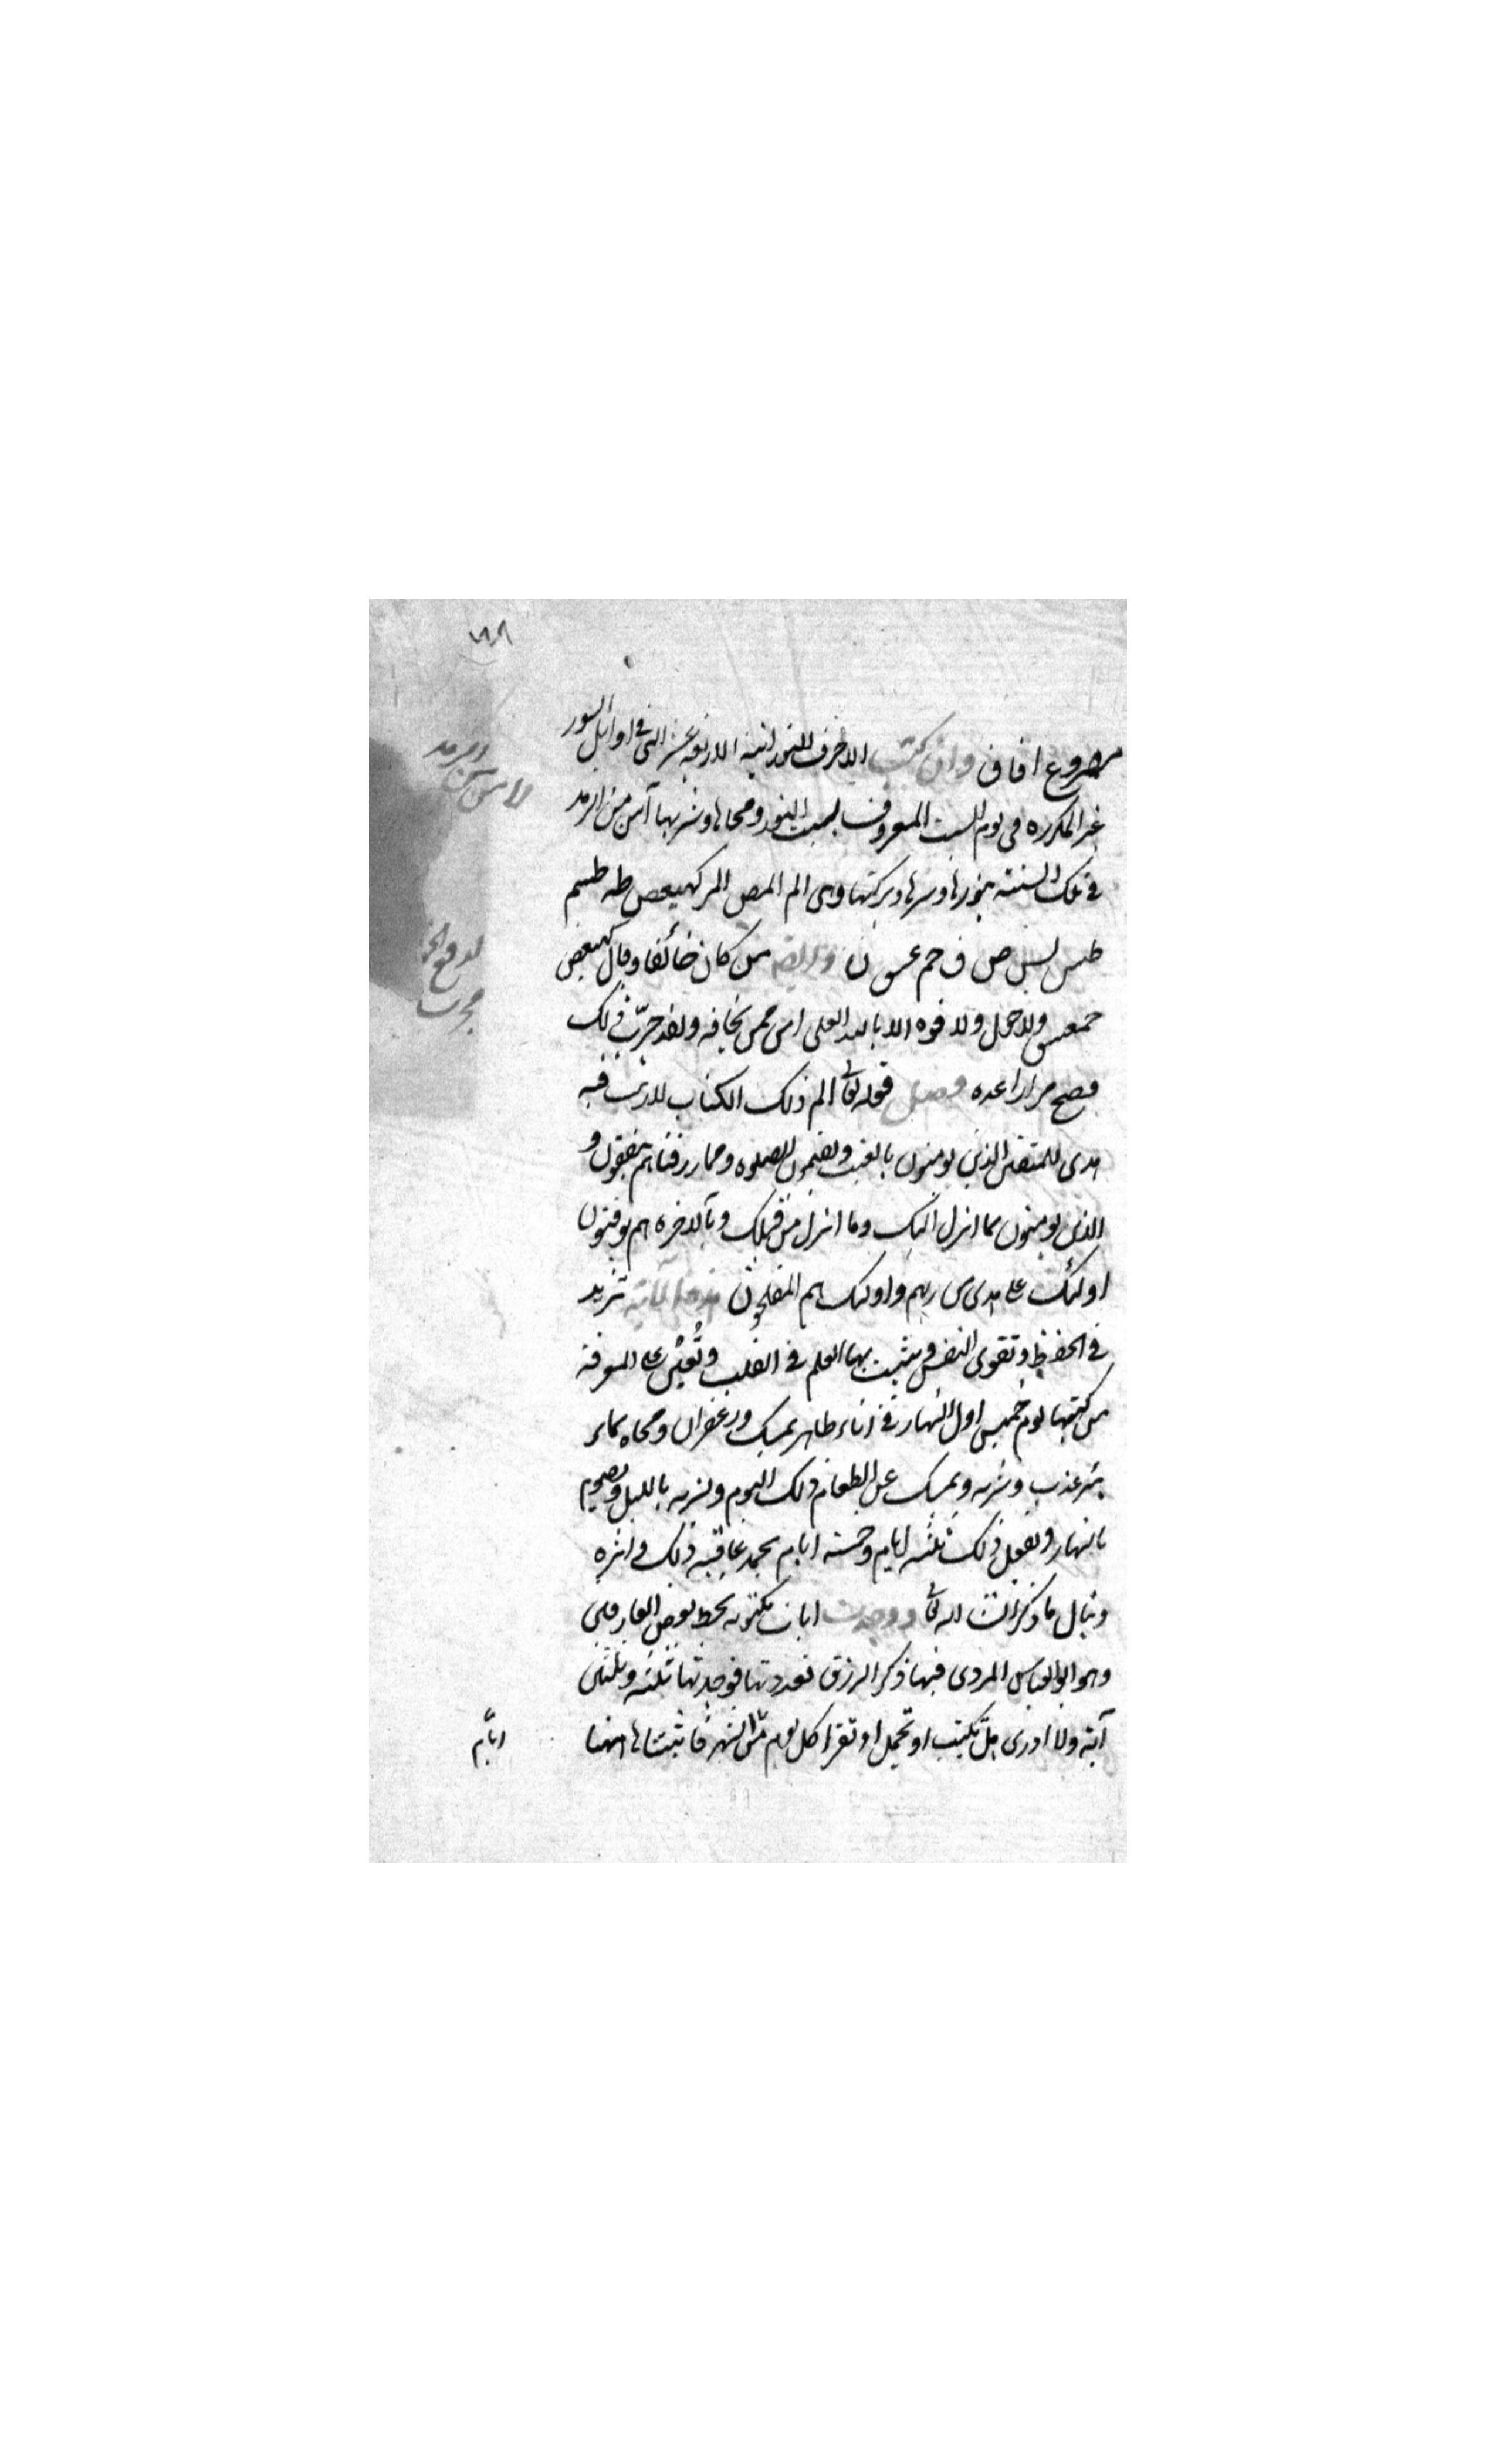 مصروع افاق وان كتب الاحرف النورانية الاربعة عشر التي في اوايل السور
غير المكرره في يوم السبت المعروف بسبت النور ومحاها وشربها آمن من الرمد
في تلك السنة بنورها وسرها وبركتها وهي الم المص المر كهيعص طه طسم
طس يس ص ق حم عسق ن من كان خائفا وقال كهيعص
حمعسق ولا حول ولا قوه الا بالله العلي امن ممن يخافه ولقد جرب ذلك
فصح مرارا عده فصل قوله تعالى الم ذلك الكتاب لا ريب فيه
هدى للمتقين الذين يومنون بالغيب ويقيمون الصلوه ومما رزقناهم ينفقون و
الذين يومنون بما انزل اليك وما انزل من قبلك وبالاخره هم يوقنون
اولئك على هدى من ربهم واولئك هم المفلحون هذه الاية تزيد
في الحفظ وتقوى النفس ويثبت بها العلم في القلب وتعين على المعرفة
من كتبها يوم خميس اول النهار في اناء طاهر بمسك وزعفران ومحاه بماء
بئر عذب وشربه ويمسك عن الطعام ذلك اليوم ويشربه بالليل ويصوم
بالنهار ويفعل ذلك ثلثه ايام وخمسة ايام يحمد عاقبة ذلك في اثره
وينال ما ذكر انشا الله تعالى ووجدت ايات مكتوبه بخط بعض العارفين
وهو ابو العباس المرسى فيها ذكر الرزق فعددتها فوجدتها ثلثه وثلثين
آية ولا ادرى هل تكتب او تحمل او تقرا كل يوم من الشهر فاثبتناها هنا
ايام
لامن من الرمد
لدفع
مجرب